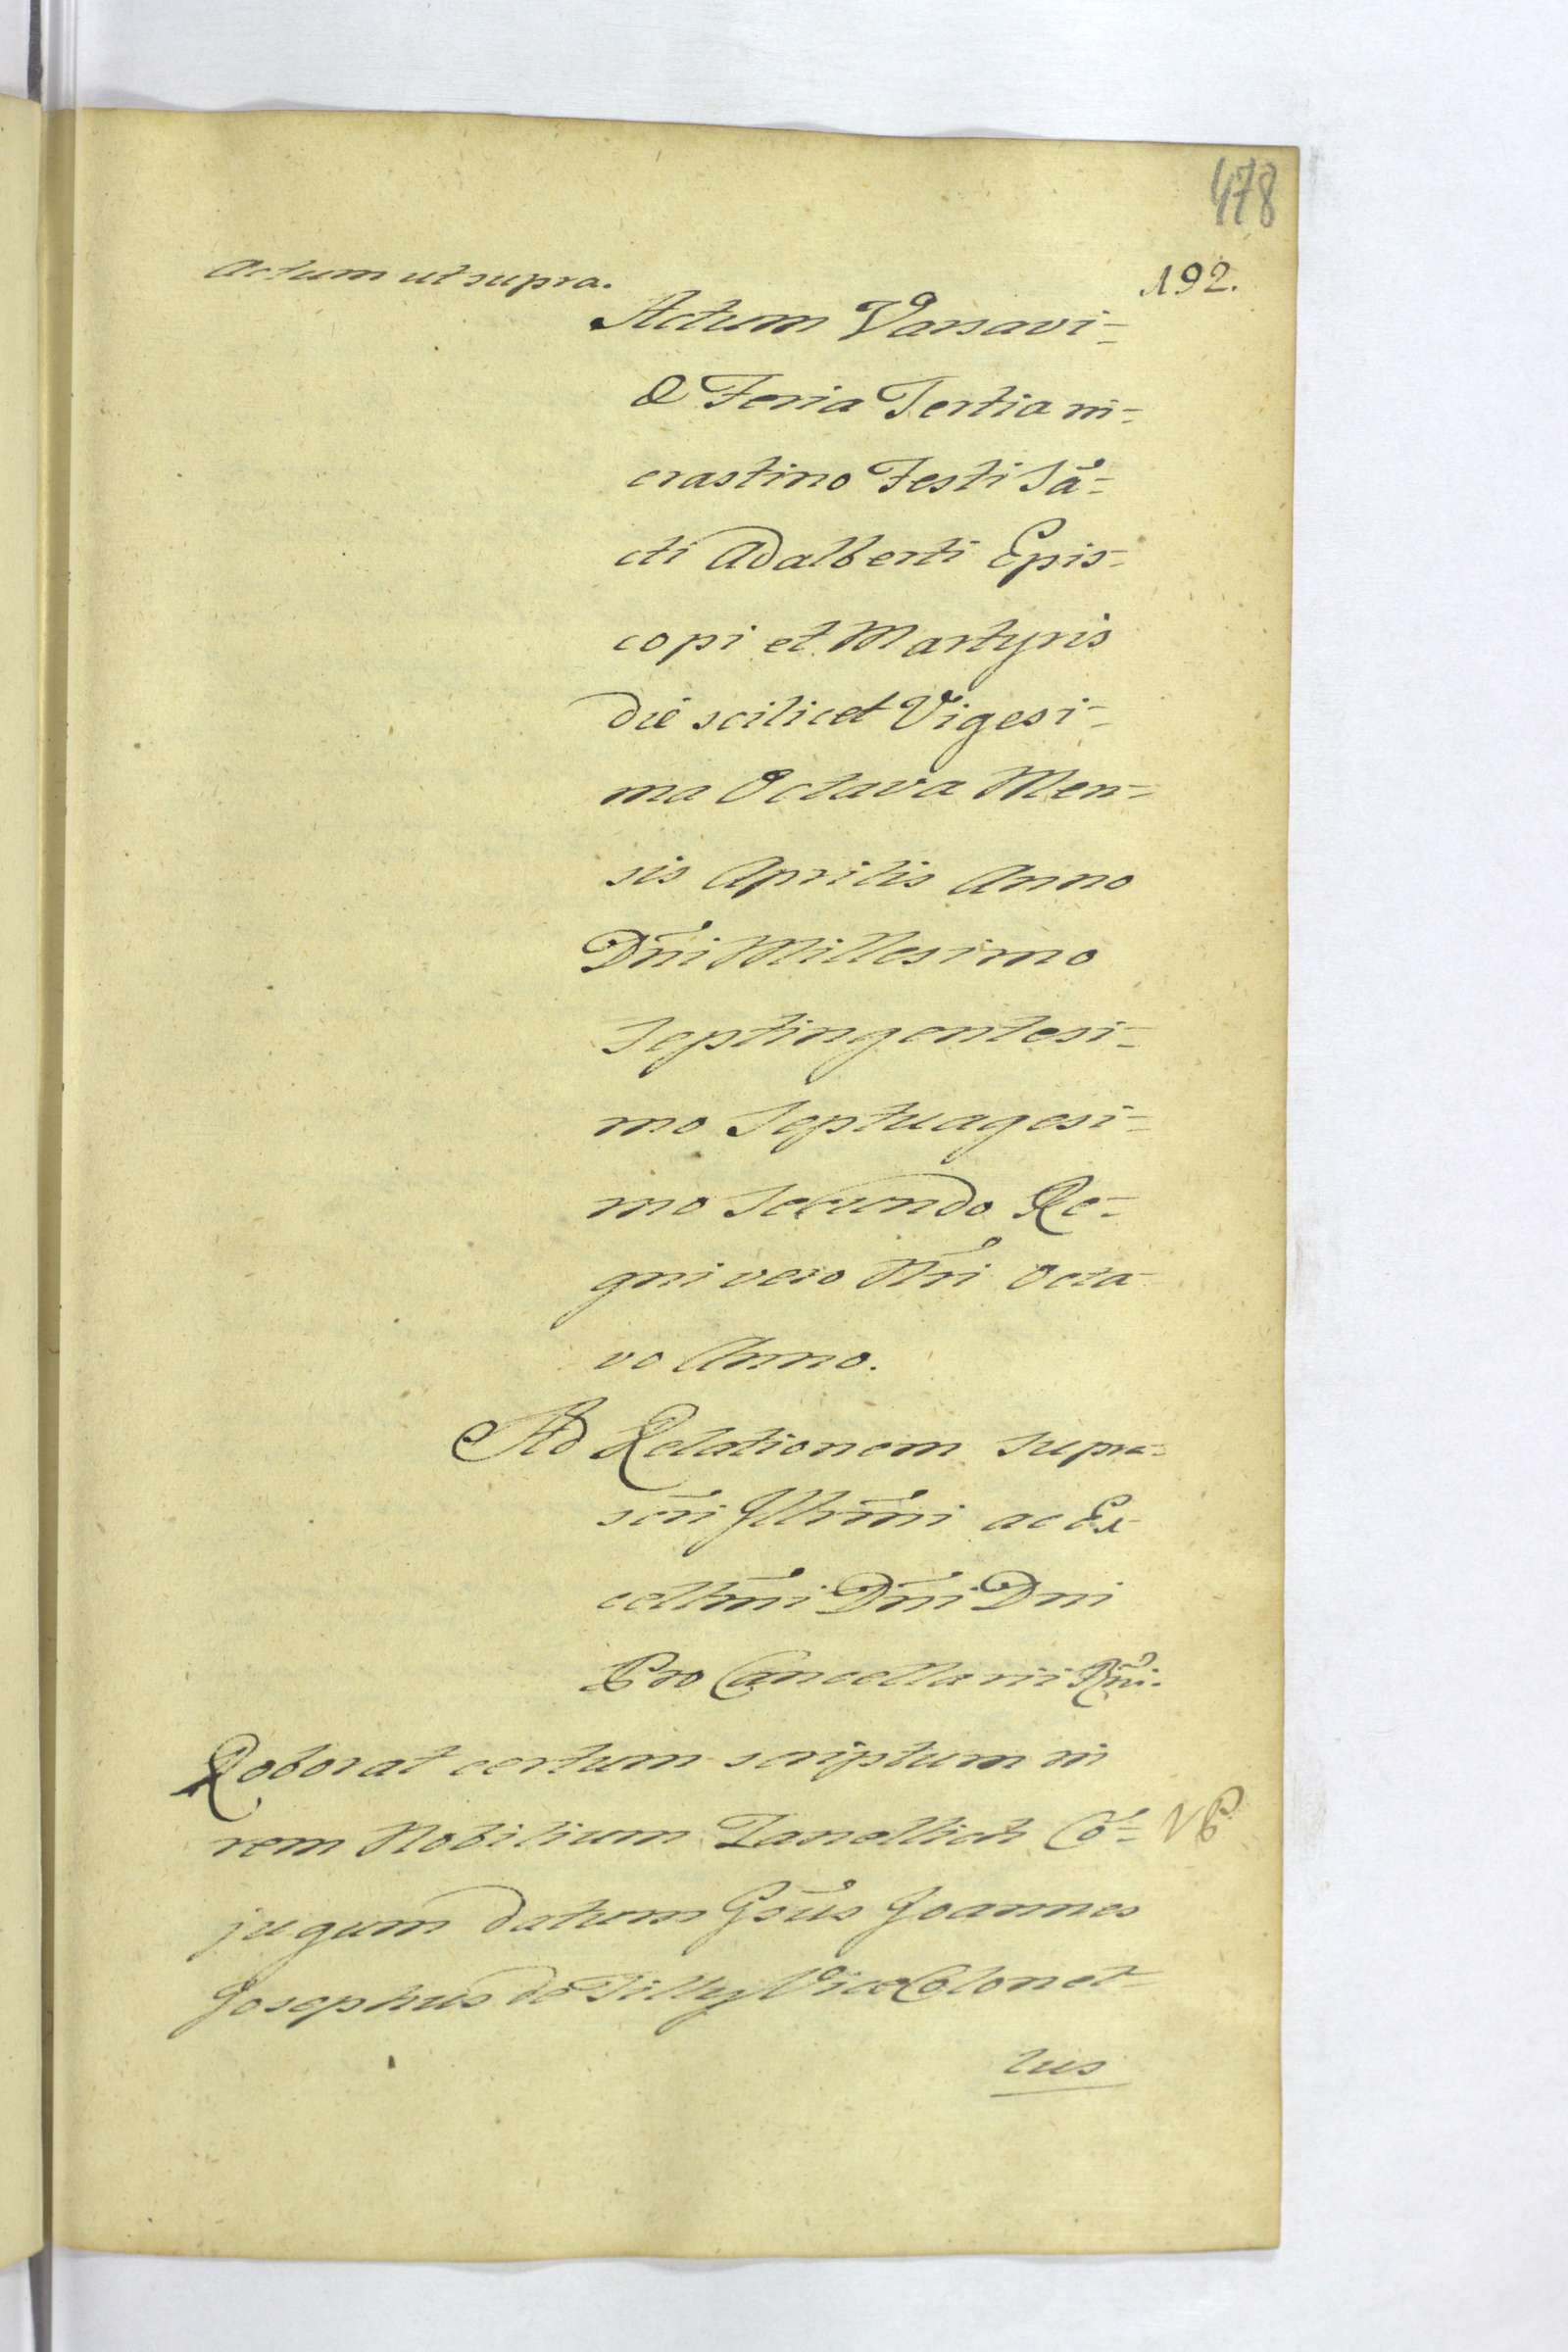 478
192.
Actum ut supra.
Actum Varsavi=
æ Feria Tertia in=
crastino Festi Sã=
cti Adalberti Epis-
copi et Martyris
die scilicet Vigesi=
ma Octava Men=
sis Aprilis Anno
Dñi Millesimo
Septingentesi=
mo Septuagesi=
mo Secundo Re=
gni vero Nri Octa
vo Anno.
Ad Relationem supra=
scri Illrmi ac Ex
celltmi Dñi Dni
Pro Cancellarii Rni.
Roborat certum scriptum in
rem Nobilium Tanellich Cõ=
jugum datum Gsus Joannes
Josephus de Tilly Vice Colonel=
lus